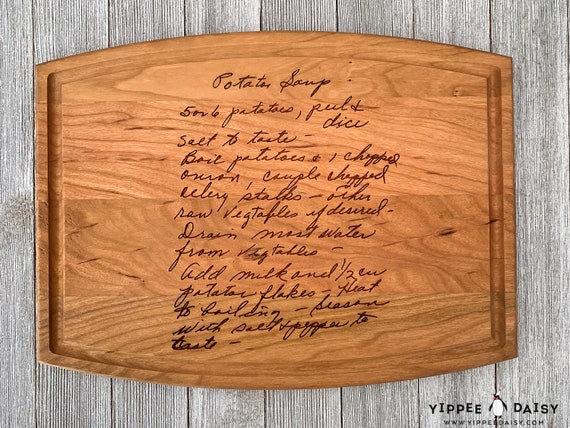 Potatoe Soup
5 or 6 potatoes, peel &
dice
Salt to taste -
Boil potatoes & 1 chopped
onion, couple chopped
celery stalks - other
raw vegtables if desired -
Drain most water
from vegtables -
Add milk and 1/2 cu
potatoe flakes - Heat
to boiling - Season
with salt & pepper to
taste -
YIPPEE DAISY
WWW.YIPPEEDAISY.COM